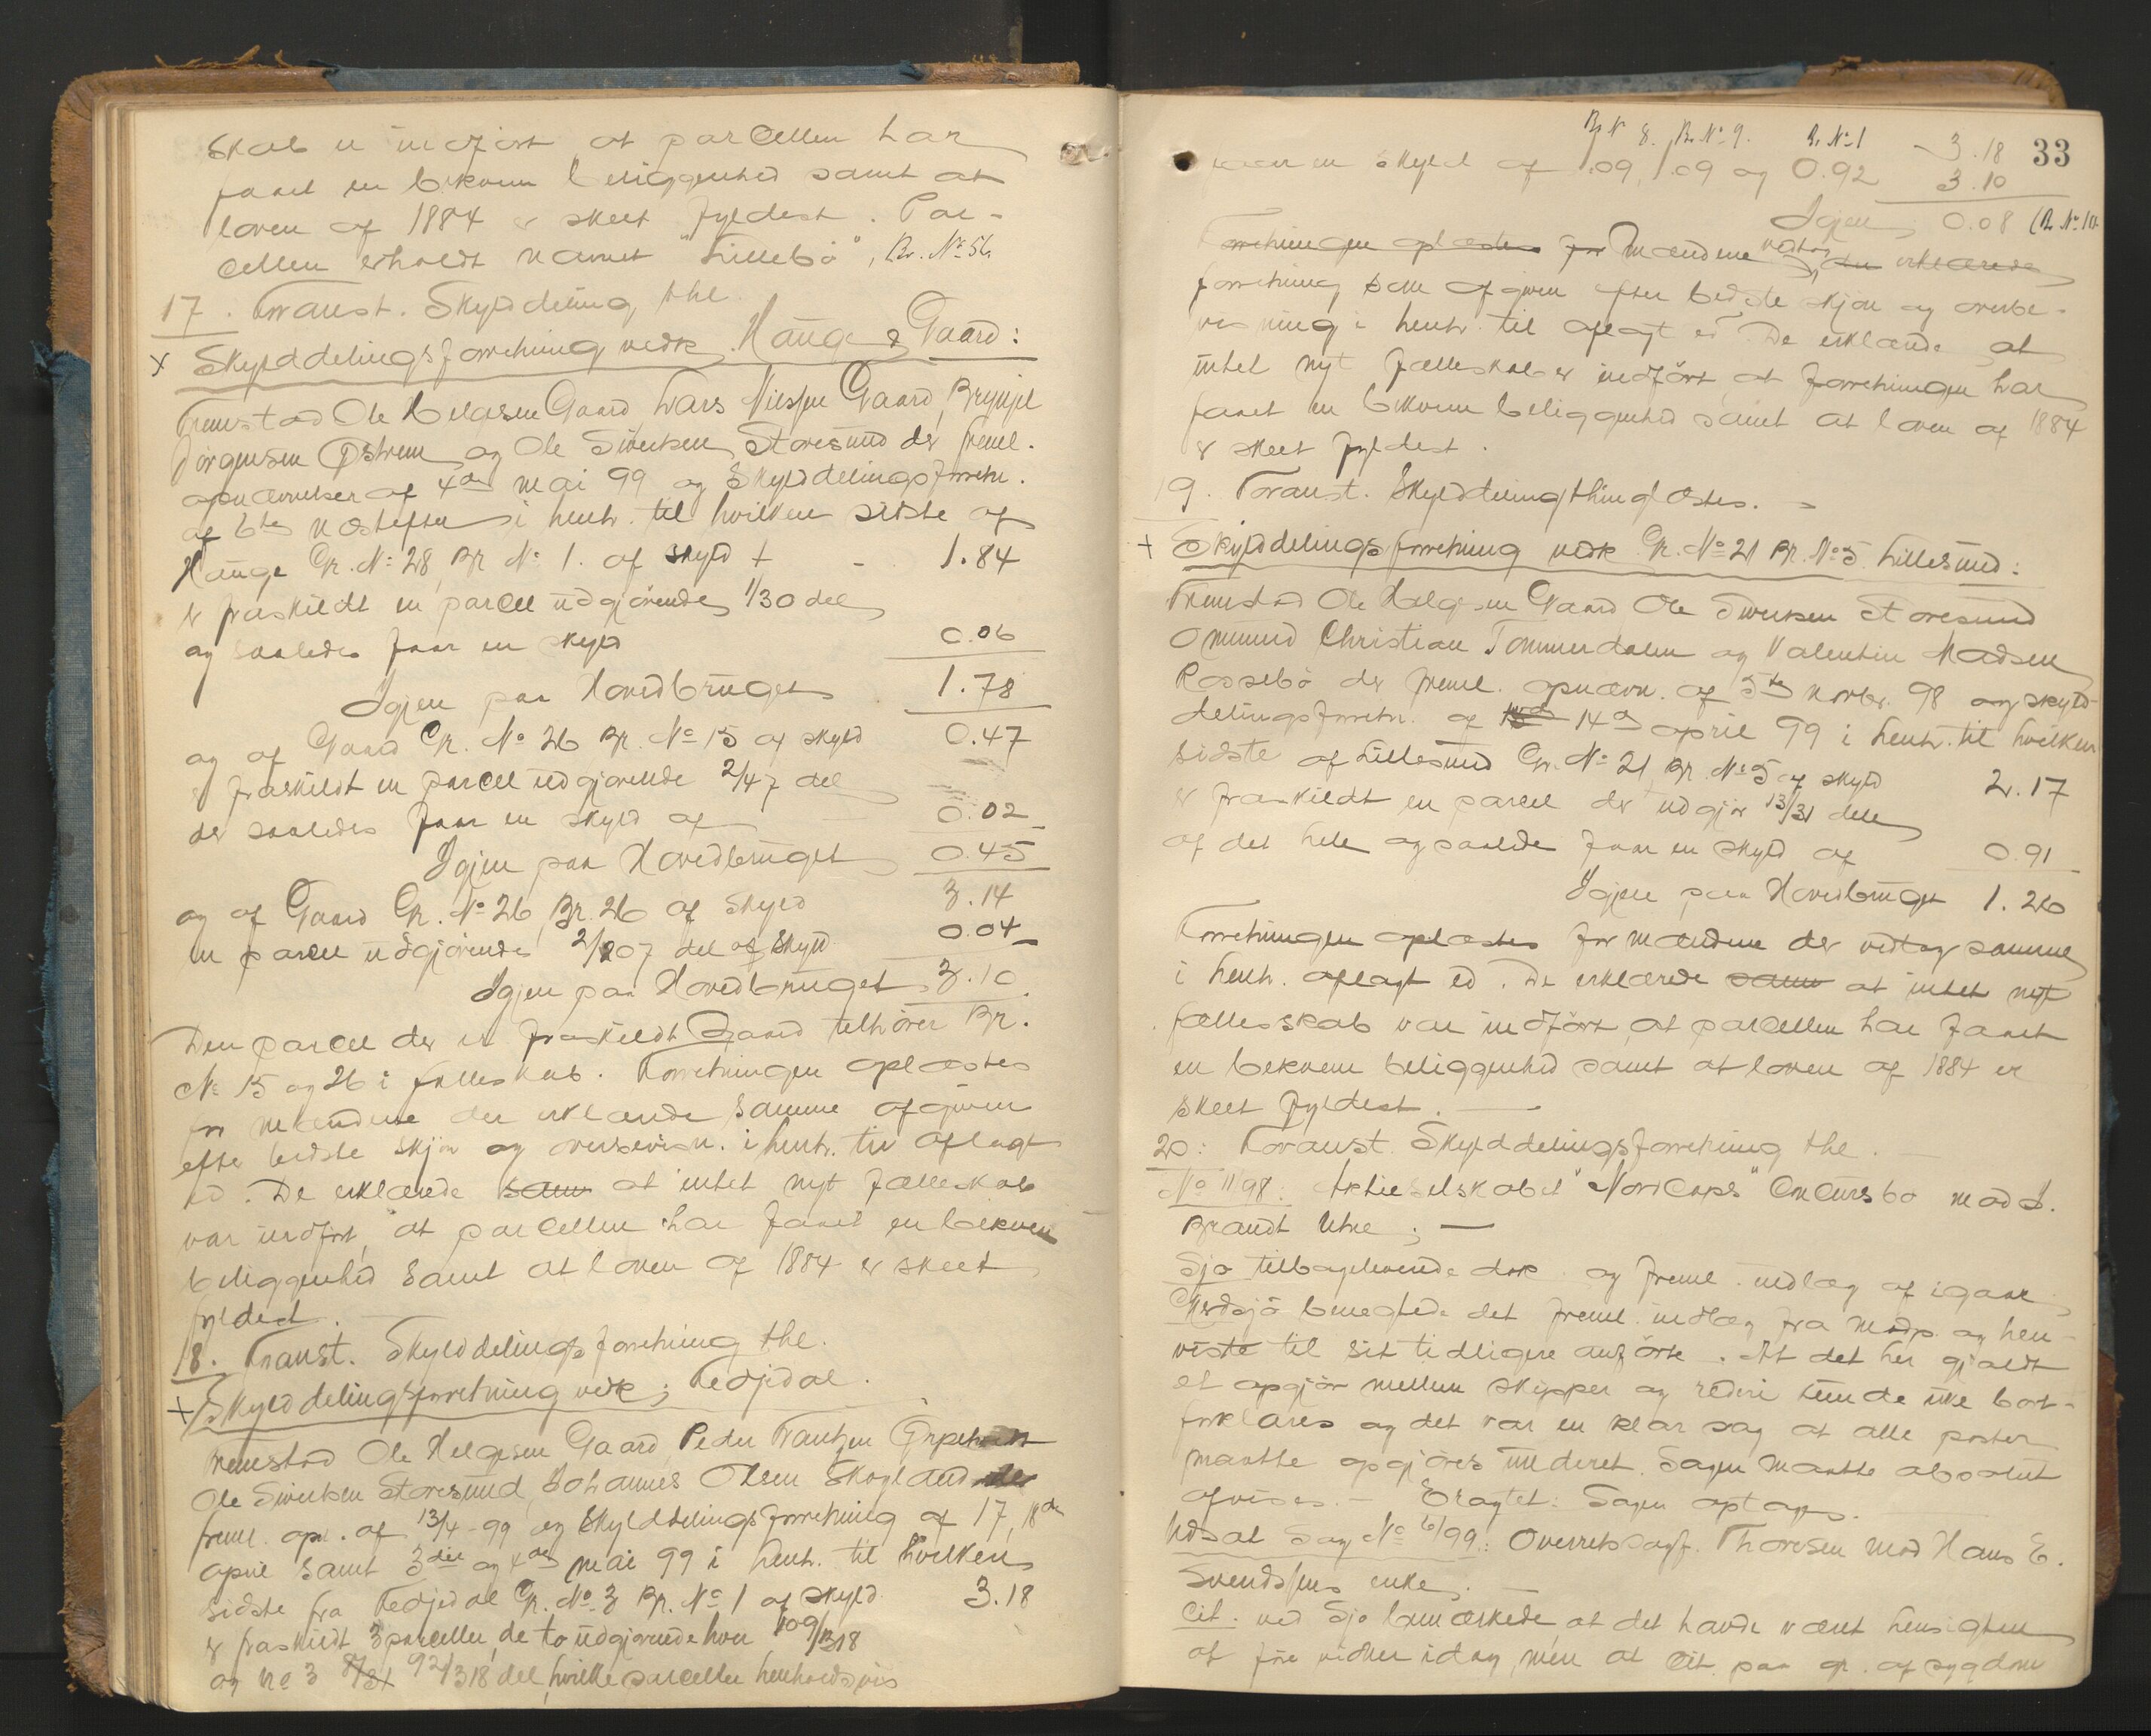 skab er indført at parcellen har
faaet en bekvem beliggenhed samt at
loven af 1884 er skeet fyldest. Par-
cellen erholdt navnet "Lillebö", Br. No 56.
17. Foranst. Skylddeling thl.
x Skylddelingsforretning vedk. Hauge & Gaard:
Fremstod Ole Helgesen Gaard, Lars Nilssen Gaard, Brynjel
Jørgensen Østrem og Ole Sivertsen Storesund der freml.
opnævnelse af 4de mai 99 og Skylddelingsforretn.
af 6te næstefter i henh. til hvilken sidste af
Hauge Gr. No 28, Br No 1. af skyld + - 1.84
er fraskildt en parcel udgjørende 1/30 del
og saaledes faar en skyld 0.06
Igjen paa Hovedbruget 1.78
og af Gaard Gr. No 26 Br. No 15 af skyld 0.47
er fraskildt en parcel udgjørende 2/47 del
der saaledes faar en skyld af 0.02
Igjen paa Hovedbruget 0.45
og af Gaard Gr. No 26, Br. 26 af Skyld 3.14
en parcel udgjørende 2/207 del af Skyld 0.04
Igjen paa Hovedbruget 3.10
Den parcel der er fraskildt Gaard tilhører Br.
No 15 og 26 i fælleskab. Forretningen oplæstes
for mændene der erklærede samme afgiven
efter bedste skjøn og overbevisn. i henh. til aflagt
ed. De erklærede sam at intet nyt fælleskab
var indført, at parcellen har faaet en bekvem
beliggenhed samt at loven af 1884 er skeet
fyldest.
18. Foranst. Skylddelingsforretning thl.
x Skylddelingsforretning vedk; Tedjedal.
Fremstod Ole Helgesen Gaard, Peder Frantzen
Ole Sivertsen Storesund, Johannes Olsen Skogland der
freml. opn. af 13/4-99 og Skylddelingsforretning af 17, 18de
april samt 3die og 4de mai 99 i henh. til hvilken
sidste fra Tedjedal Gr. No 3 Br. No 1 af skyld 3.18
er fraskildt 3 parceller, de to udgjørende hver 109/318
og No 3 92/318 del, hvilke parceller henholdsvis
33
Br N 8. Br. No 9. Br. No 1
faar en skyld af 1.09, 1.09 og 0.92 3.18
3.10
Igjen 0.08 (Br. No 10
Forretningen oplæstes for mændene vedtog der erklærede
forretning som afgiven efter bedste skjøn og overbe-
visning i henh. til aflagt ed. De erklærede at
intet nyt fælleskab er indført, at forretningen har
faaet en bekvem beliggenhed samt at loven af 1884
er skeet fyldest.
19. Foranst. Skylddeling thinglæstes.
+ Skylddelingsforretning vedk Gr. No 21 Br. No 5 Lillesund:
Fremstod Ole Helgesen Gaard Ole Sivertsen Storesund
Ommund Christian Tømmerdalen og Valentin Madsen
Rossebö der freml. opnævn. af 5te novbr. 98 og skyld-
delingsforretn. af 14de april 99 i henh. til hvilken
sidste af Lillesund Gr. No 21 Br. No 5 af skyld 2.17
er fraskildt en parcel der udgjør 13/31 dele
af det hele og saaledes faar en skyld af 0.91
Igjen paa Hovedbruget 1.26
Forretningen oplæstes for mændene der vedtog samme
i henh. aflagt ed. De erklærede sam at intet nyt
fællesskab var indført, at parcellen har faaet
en bekvem beliggenhed samt at loven af 1884 er
skeet fyldest.
20: Foranst. Skylddelingsforretning thl.
No 11/98: Aktieselskabet "Nordcaps" Concursbo mod J.
Brandt Utne;
Sjö tilbageleverede dok. og freml. indlæg af igaar,
Kerdsjö benegtede det freml. indlæg fra modp. og hen-
viste til sit tidligere anførte. At det her gjaldt
et opgjør mellem skipper og rederi kunde ikke bort-
forklares og det var en klar sag at alle poster
maatte opgjøres underet. Sagen maatte absolut
afvises. - Eragtet: Sagen optages.
Udsat Sag No 6/99: Overretssagf. Thoresen mod Hans E.
Svendsens enke;
Cit. ved Sjö bemærkede at det havde været hensigten
at føre vidner idag, men at Cit. paa gr. af sygdom